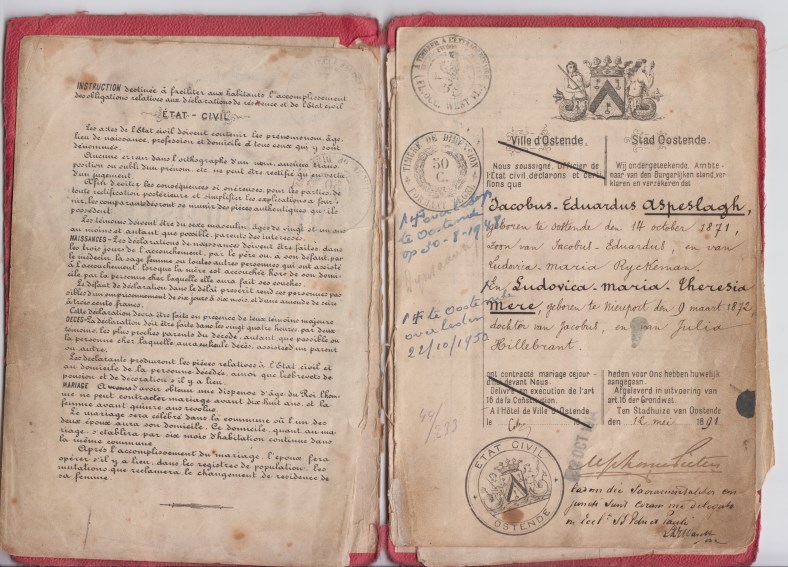 INSTRUCTION destinée à faciliter aux habitants l'accomplissement
des obligations relatives aux déclarations de résidence et de l'Etat civil
ÉTAT - CIVIL
Les actes de l'Etat civil doivent contenir les prénoms, nom, âge,
lieu de naissance, profession et domicile de tous ceux qui y sont
dénommés.
Aucune erreur dans l'orthographe d'un nom, aucune trans-
position ou oubli d'un prénom, etc. ne peut être rectifié qu'en vertu
d'un jugement.
Afin d'éviter les conséquences si onéreuses, pour les parties, de
toute rectification postérieure et simplifier les explications à four-
nir, les comparants devront se munir des pièces authentiques qu'ils
possèdent.
Les témoins doivent être du sexe masculin, âgés de vingt et un ans
au moins et autant que possible, parents des intéressés.
NAISSANCES - Les déclarations de naissances doivent être faites, dans
les trois jours de l'accouchement, par le père ou, à son défaut, par
le médecin, la sage femme ou toutes autres personnes qui ont assisté
à l'accouchement, lorsque la mère est accouchée hors de son domi-
cile, par la personne chez laquelle elle aura fait ses couches.
Le défaut de déclaration dans le délai prescrit rend ces personnes pas-
sibles d'un emprisonnement de six jours à six mois, et d'une amende de seize
à trois cents francs.
Cette déclaration devra être faite en présence de deux témoins majeurs
DÉCÈS - La déclaration doit être faite dans les vingt quatre heures, par deux
témoins, les plus proches parents du décédé, autant que possible ou
la personne chez laquelle aura eu lieu le décès, assistée d'un parent
ou autre.
Les déclarants produiront les pièces relatives à l'Etat civil et
au domicile de la personne décédée, ainsi que les brevets de
pension et de décoration s'il y a lieu.
MARIAGE A moins d'avoir obtenu une dispense d'âge du Roi, l'hom-
me ne peut contracter mariage avant dix huit ans, et la
femme avant quinze ans révolus.
Le mariage sera célébré dans la commune où l'un des
deux époux aura son domicile. Ce domicile, quant au ma-
riage, s'établira par six mois d'habitation continue dans
la même commune.
Après l'accomplissement du mariage, l'époux fera
opérer s'il y a lieu, dans les registres de population, les
mutations que réclamera le changement de résidence de
sa femme.
TIMBRE DE DIMENSION
50
C.
Ville d'Ostende Stad Oostende.
Nous soussigné, Officier de
l'État civil, déclarons et certi-
fions que
Wij ondergeteekende, Ambte-
naar van den Burgerlijken stand, ver-
klaren en verzekeren dat
Jacobus-Eduardus Aspeslagh,
geboren te Oostende den 14 october 1871,
zoon van Jacobus-Eduardus, en van
Ludovica-Maria Ryckeman.
En Ludovica-Maria-Theresia
Mere, geboren te Nieuport den 9 maart 1872,
dochter van Jacobus, en van Julia
Hillebrant.
te Oostende
op 30-8-1948
te Oostende
overleden
22/10/1950
ont contracté mariage ce jour-
d'hui devant Nous.
Délivré en exécution de l'art
16 de la Constitution.
A l'Hôtel de Ville d'Ostende
le
heden voor Ons hebben huwelijk
aangegaan.
Afgeleverd in uitvoering van
art 16 der Grondwet.
Ten Stadhuize van Oostende
den 12 mei 1891
OCT
ÉTAT CIVIL
OSTENDE